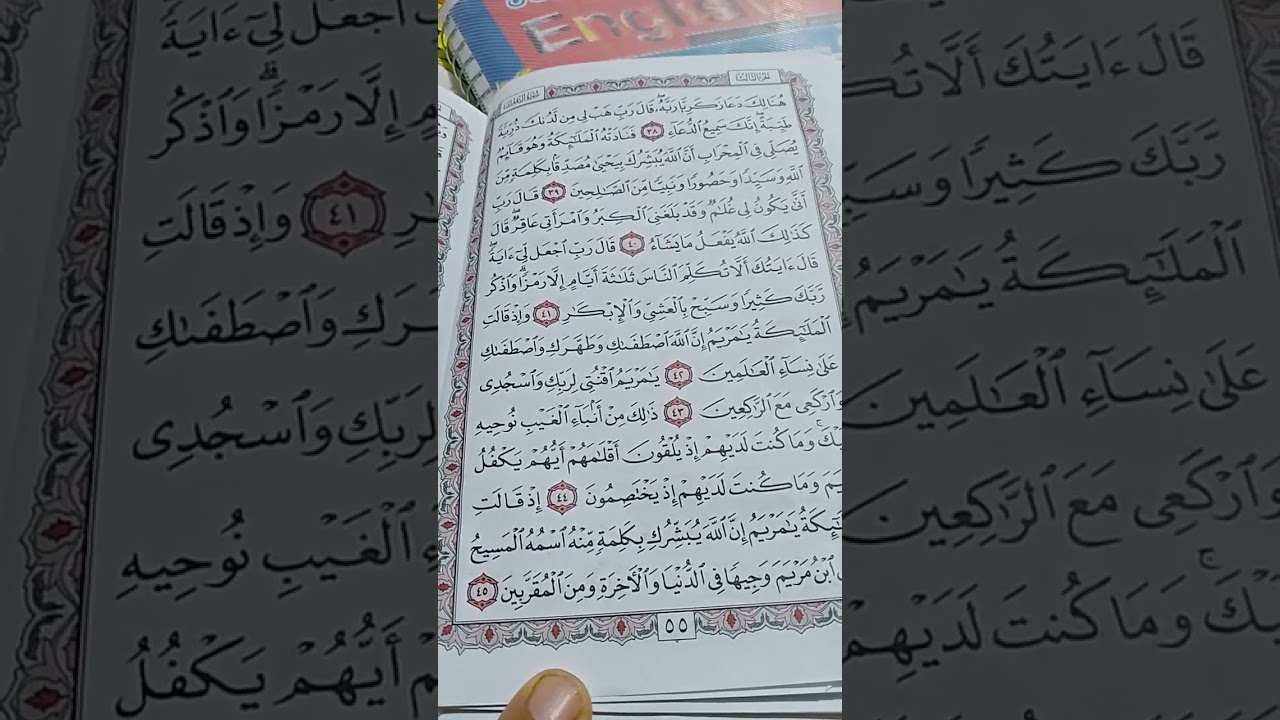 English
الجزء الثالث
سورة آل عمران
هُنَالِكَ دَعَا زَكَرِيَّا رَبَّهُۥ ۖ قَالَ رَبِّ هَبْ لِى مِن لَّدُنكَ ذُرِّيَّةً
طَيِّبَةً ۖ إِنَّكَ سَمِيعُ ٱلدُّعَآءِ ٣٨ فَنَادَتْهُ ٱلْمَلَـٰٓئِكَةُ وَهُوَ قَآئِمٌ
يُصَلِّى فِى ٱلْمِحْرَابِ أَنَّ ٱللَّهَ يُبَشِّرُكَ بِيَحْيَىٰ مُصَدِّقًۢا بِكَلِمَةٍ مِّنَ
ٱللَّهِ وَسَيِّدًا وَحَصُورًا وَنَبِيًّا مِّنَ ٱلصَّـٰلِحِينَ ٣٩ قَالَ رَبِّ
أَنَّىٰ يَكُونُ لِى غُلَـٰمٌ وَقَدْ بَلَغَنِىَ ٱلْكِبَرُ وَٱمْرَأَتِى عَاقِرٌ ۖ قَالَ
كَذَٰلِكَ ٱللَّهُ يَفْعَلُ مَا يَشَآءُ ٤٠ قَالَ رَبِّ ٱجْعَل لِّىٓ ءَايَةً ۖ
قَالَ ءَايَتُكَ أَلَّا تُكَلِّمَ ٱلنَّاسَ ثَلَـٰثَةَ أَيَّامٍ إِلَّا رَمْزًا ۗ وَٱذْكُر
رَّبَّكَ كَثِيرًا وَسَبِّحْ بِٱلْعَشِىِّ وَٱلْإِبْكَـٰرِ ٤١ وَإِذْ قَالَتِ
ٱلْمَلَـٰٓئِكَةُ يَـٰمَرْيَمُ إِنَّ ٱللَّهَ ٱصْطَفَىٰكِ وَطَهَّرَكِ وَٱصْطَفَىٰكِ
عَلَىٰ نِسَآءِ ٱلْعَـٰلَمِينَ ٤٢ يَـٰمَرْيَمُ ٱقْنُتِى لِرَبِّكِ وَٱسْجُدِى
وَٱرْكَعِى مَعَ ٱلرَّٰكِعِينَ ٤٣ ذَٰلِكَ مِنْ أَنۢبَآءِ ٱلْغَيْبِ نُوحِيهِ
يْكَ ۚ وَمَا كُنتَ لَدَيْهِمْ إِذْ يُلْقُونَ أَقْلَـٰمَهُمْ أَيُّهُمْ يَكْفُلُ
يَمَ وَمَا كُنتَ لَدَيْهِمْ إِذْ يَخْتَصِمُونَ ٤٤ إِذْ قَالَتِ
ـٰٓئِكَةُ يَـٰمَرْيَمُ إِنَّ ٱللَّهَ يُبَشِّرُكِ بِكَلِمَةٍ مِّنْهُ ٱسْمُهُ ٱلْمَسِيحُ
ٱبْنُ مَرْيَمَ وَجِيهًا فِى ٱلدُّنْيَا وَٱلْـَٔاخِرَةِ وَمِنَ ٱلْمُقَرَّبِينَ ٤٥
٥٥